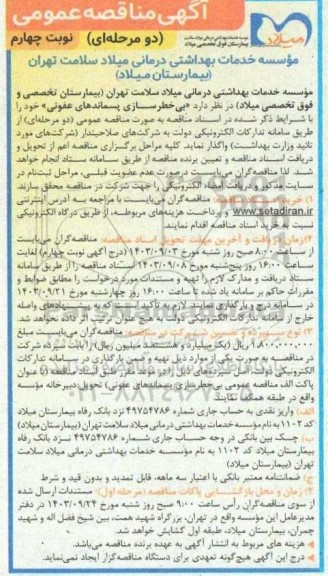 آگهی مناقصه عمومی
(دو مرحله‌ای) نوبت چهارم
میلاد
موسسه خدمات بهداشتی درمانی میلاد سلامت
بیمارستان فوق تخصصی میلاد
مؤسسه خدمات بهداشتی درمانی میلاد سلامت تهران
(بیمارستان میلاد)
مؤسسه خدمات بهداشتی درمانی میلاد سلامت تهران (بیمارستان تخصصی و
فوق تخصصی میلاد) در نظر دارد «بی‌خطرسازی پسماندهای عفونی» خود را
با شرایط ذکر شده در اسناد مناقصه به صورت مناقصه عمومی (دو مرحله‌ای) از
طریق سامانه تدارکات الکترونیکی دولت به شرکت‌های صلاحیتدار (شرکت‌های مورد
تائید وزارت بهداشت) واگذار نماید. کلیه مراحل برگزاری مناقصه اعم از تحویل و
دریافت اسناد مناقصه و تعیین برنده مناقصه از طریق سامانه ستاد انجام خواهد
شد. لازم است مناقصه‌گران می‌بایست درصورت عدم عضویت قبلی، مراحل ثبت‌نام در
سایت مذکور و دریافت امضاء الکترونیکی را جهت شرکت در مناقصه محقق سازند.
۱) خرید اسناد مناقصه: مناقصه‌گران می‌بایست با مراجعه به آدرس اینترنتی
www.setadiran.ir و پرداخت هزینه‌های مربوطه، از طریق درگاه الکترونیکی
نسبت به خرید اسناد مناقصه اقدام نمایند.
۲) زمان دریافت و آخرین مهلت تحویل اسناد مناقصه: مناقصه‌گران می‌بایست
از ساعت ۸:۰۰ صبح روز شنبه مورخ ۱۴۰۳/۰۹/۰۳ (درج آگهی نوبت چهارم) لغایت
ساعت ۱۶:۰۰ روز پنج‌شنبه مورخ ۱۴۰۳/۰۹/۰۸ اسناد مناقصه را از طریق سامانه
ستاد دریافت و مدارک لازم را تهیه و مستندات مورد درخواست را مطابق ضوابط و
مقررات حاکم بر سامانه یاد شده تا ساعت ۱۶:۰۰ روز چهارشنبه مورخ ۱۴۰۳/۰۹/۲۱
در سامانه درج و بارگذاری نمایند. لازم به تاکید است که به پیشنهادهای واصله
خارج از سامانه تدارکات الکترونیکی دولت هیچ ترتیب اثر داده نخواهد شد.
۳) نوع سپرده و تضمین شرکت در مناقصه: مناقصه‌گران می‌بایست مبلغ
۱,۸۰۰,۰۰۰,۰۰۰ ریال (یک میلیارد و هشتصد میلیون ریال) را بابت سپرده شرکت
در مناقصه به صورت یکی از موارد ذیل تهیه و ضمن بارگذاری در سامانه تدارکات
پاکت الف مناقصه عمومی بی‌خطرسازی پسماندهای عفونی) تحویل دبیرخانه مؤسسه
واقع در طبقه همکف نمایند.
الف) واریز نقدی به حساب جاری شماره ۴۹۷۵۴۷۸۶ نزد بانک رفاه بیمارستان میلاد
کد ۱۱۰۲ به نام مؤسسه خدمات بهداشتی درمانی میلاد سلامت تهران (بیمارستان میلاد)
ب) چک بین بانکی در وجه حساب جاری شماره ۴۹۷۵۴۷۸۶ نزد بانک رفاه
بیمارستان میلاد کد ۱۱۰۲ به نام مؤسسه خدمات بهداشتی درمانی میلاد سلامت
تهران (بیمارستان میلاد)
ج) ضمانتنامه معتبر بانکی با اعتبار سه ماهه، قابل تمدید و بدون قید و شرط
۴) زمان و محل بازگشایی پاکات مناقصه (مرحله اول): مستندات ارسال شده
از سوی مناقصه‌گران رأس ساعت ۹:۰۰ صبح روز شنبه مورخ ۱۴۰۳/۰۹/۲۴ در دفتر
مدیرعامل این مؤسسه واقع در تهران، بزرگراه شهید همت، بین شیخ فضل اله و شهید
چمران، بیمارستان میلاد، طبقه اول گشایش خواهد شد.
هزینه های مربوط به انتشار آگهی به عهده برنده مناقصه می‌باشد.
درج این آگهی هیچ‌گونه تعهدی برای دستگاه مناقصه‌گزار ایجاد نمی‌نماید.